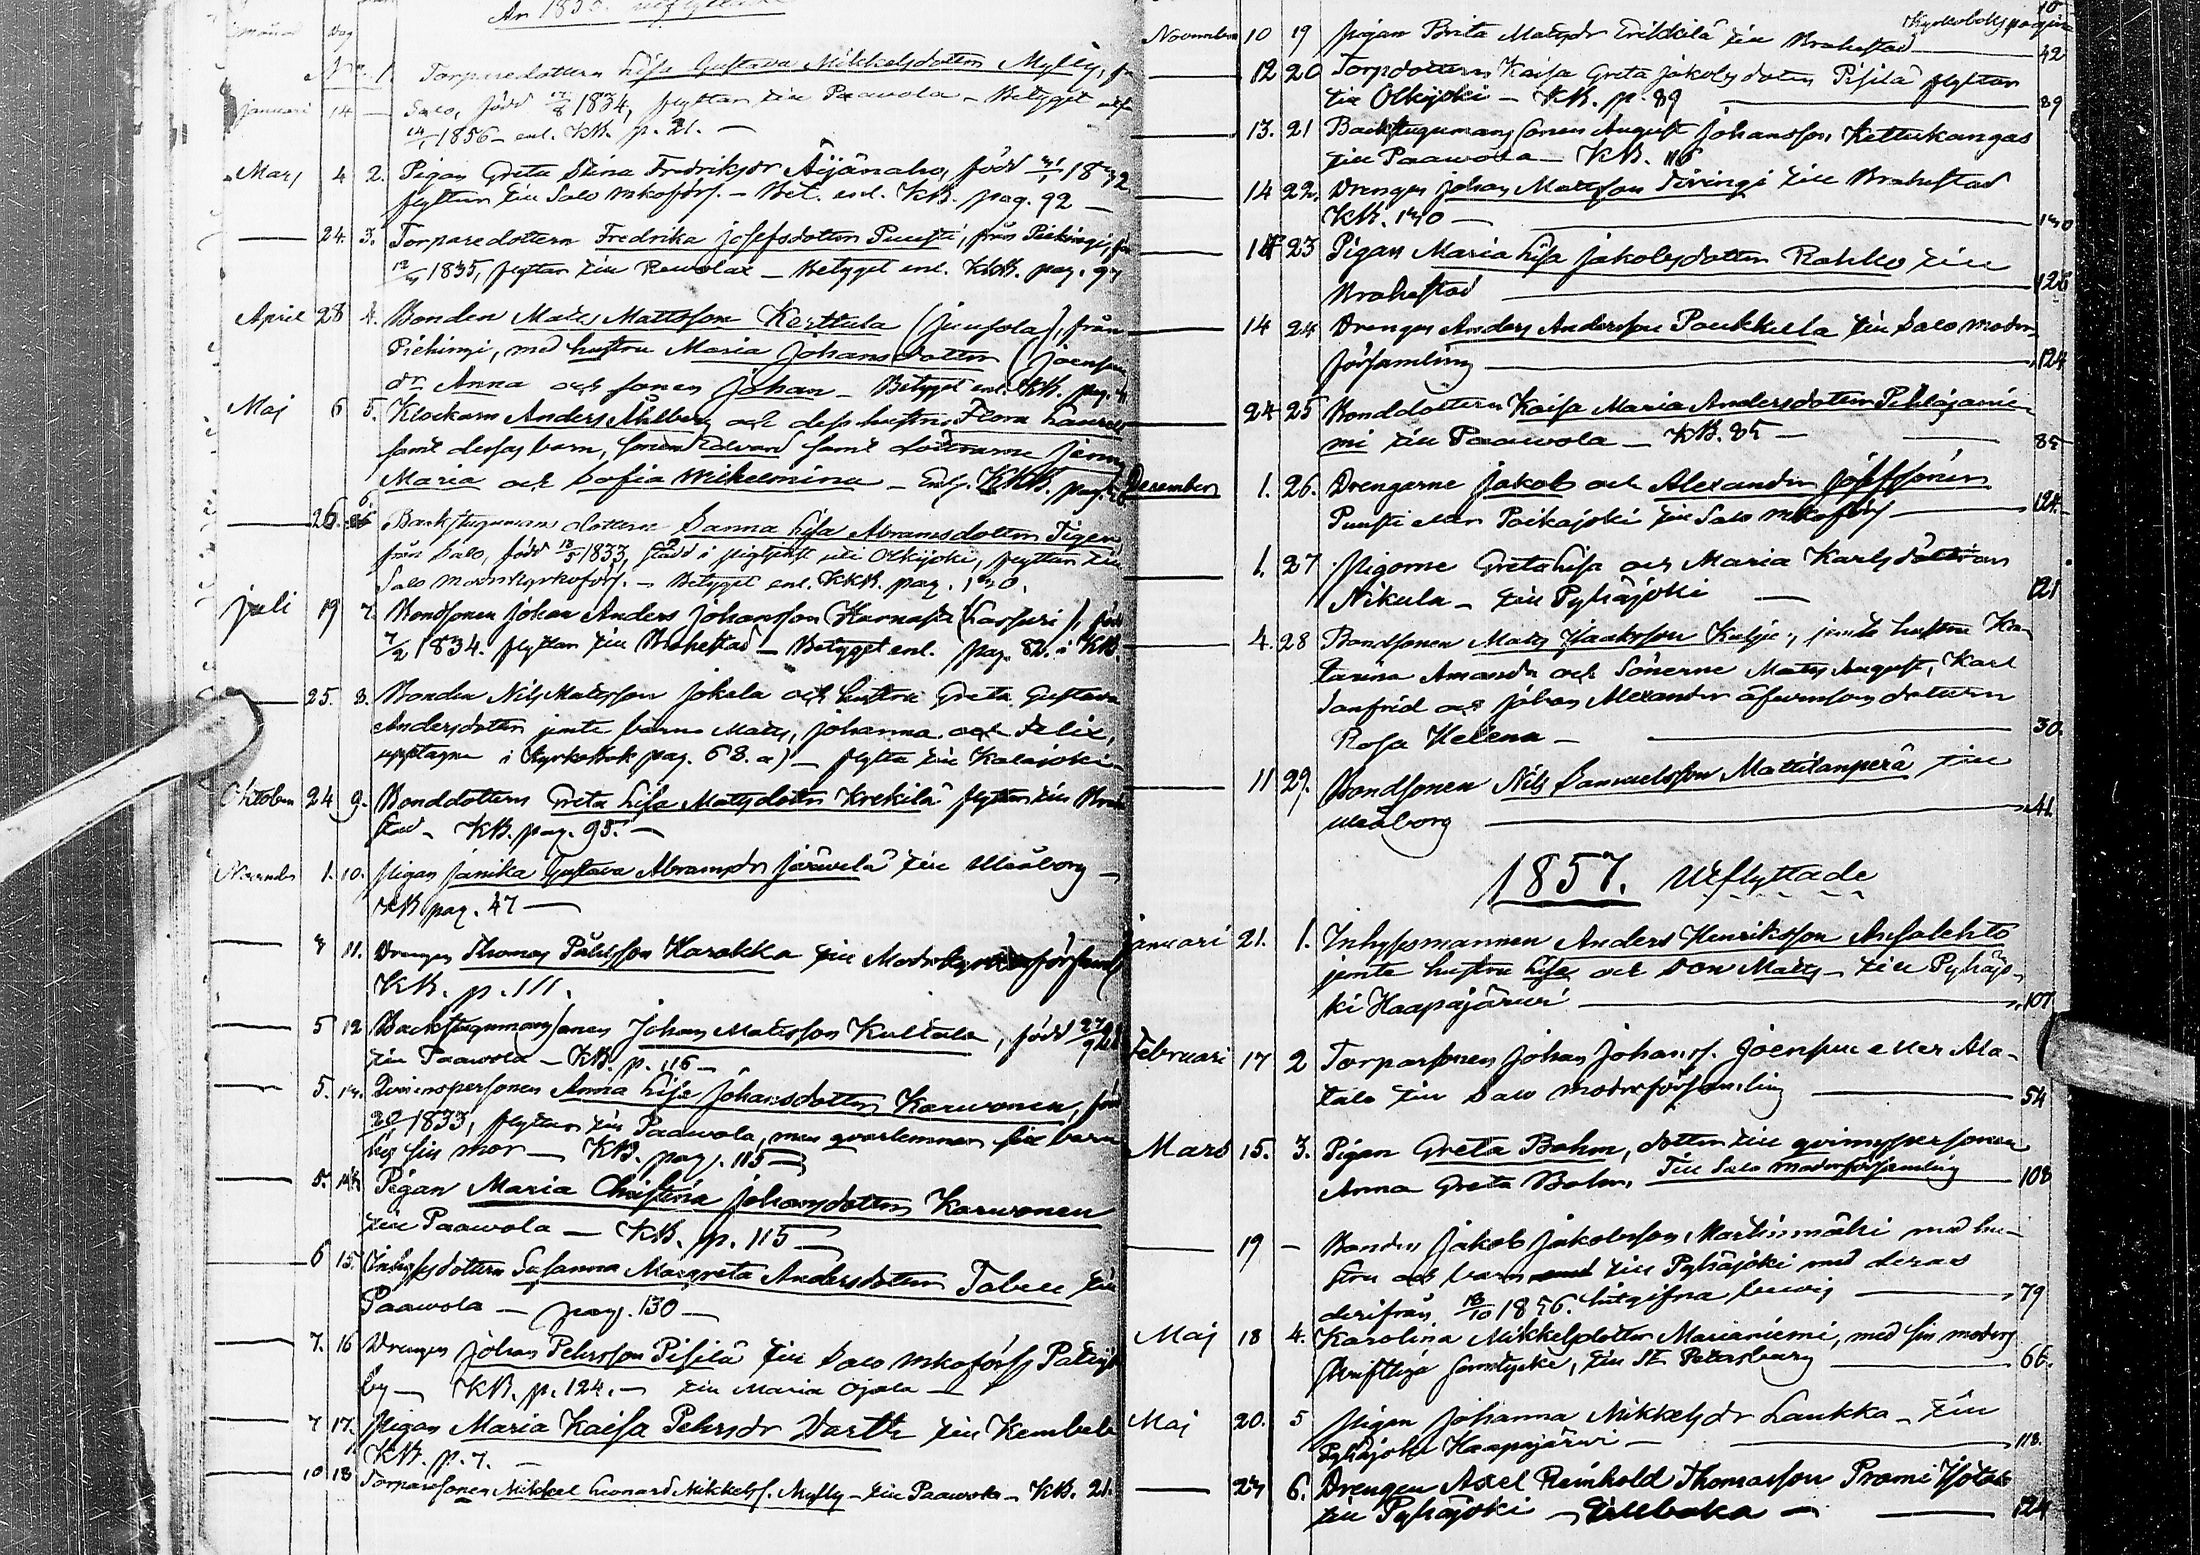 År 1856. utflyttade
Månad Dag
N:o 1. Torparedottern Lisa Gustava Mikkelsdotter Mylly, från
Januari 14 — Salo, född 1834, flyttar till Paavola — Betyget utf.
14/1 1856 — enl. KB. p. 21. —
Mars 4 2. Pigan Greta Stina Fredriksdr Äijänaho, född
flyttar till Salo mkoförs. — Bet. enl. KB. pag. 92 —
— 24. 3. Torparedottern Fredrika Josefsdotter Puusti, från Piehingi, född
1835, flyttar till Rewolax — Betyget enl. KKB. pag. 97
April 28 4. Bonden Mats Mattsson Kerttula (Juusola), från
Piehingi, med hustru Maria Johansdotter (Joensuu
dr Anna och sonen Johan — Betyget enl. KB. pag.
Maj 6 5. Klockarn Anders Åhlberg och dess hustru Flora Laurell
samt dessas barn, sonen Edvard samt döttrarne Jenny
Maria och Sofia Wilhelmina — Enl. KKB. pag.
— 26. 6. Backstugumans dottern Sanna Lisa Abramsdotter Tigen
från Salo, född 1833, städd i pigtjenst uti Olkijoki, flyttar till
Salo moderkyrkoförs. — Betyget enl. KKB. pag. 130.
Juli 19 7. Bondsonen Johan Anders Johansson Karnasta (Lassuri), född
7/2 1834. flyttar till Brahestad — Betyget enl. pag. 82. i KB.
— 25. 8. Bonden Nils Matsson Jokela och hustru Greta Gustava
Andersdotter jemte barnen Mats, Johanna och Felix,
upptagne i Kyrkobok pag. 68. a) — flytta till Kalajoki —
Oktober 24 9. Bonddottern Greta Lisa Matsdotter Krekilä flyttar till Brahe
stad — KB. pag. 95. —
November 1. 10. Pigan Janika Gustava Abramsdr Järwelä till Uleåborg —
KB pag. 47 —
— 3 11. Drengen Thomas Påhlsson Karakka till Moderkyrkoförsamlg
KB. p. 111.
— 5 12 Backstugumans sonen Johan Matsson Kultala, född
till Paavola — KB. p. 116 —
— 5. 13. Qvinnspersonen Anna Lisa Johansdotter Karwonen, född
1833, flyttar till Paawola, men qvarlemnar sitt barn
hos sin mor — KB. pag. 115 —
— 5. 14. Pigan Maria Christina Johansdotter Karwonen
till Paawola — KB. p. 115 —
— 6 15. Inhysdottern Susanna Margreta Andersdotter Tabell till
Paawola — pag. 130 —
— 7. 16 Drengen Johan Pehrsson Pisilä till Salo mkoförs Pattijoki
by — KB. p. 124. — till Maria Ojala —
— 7 17. Pigan Maria Kaisa Pehrsdr Wartti till Kembele
KB. p. 7. —
— 10 18 Torparesonen Mikkel Leonard Mikkelss. Mylly — till Paawola — KB. 21.
Kyrkoboks pagina
November 10 19 Pigan Brita Matsdr Erkkilä till Brahestad — 42
— 12 20 Torpdottern Kaisa Greta Jakobsdotter Pisilä flyttar
till Olkijoki — KB. p. 89 — 89
— 13. 21 Backstugumans sonen August Johansson Kettukangas
till Paawola — KB. 116
— 14 22. Drengen Johan Mattsson Piringi till Brahestad
KB. 130 — 130
— 14 23 Pigan Maria Lisa Jakobsdotter Rahko till
Brahestad — 126
— 14 24 Drengen Anders Andersson Paukkula till Salo moder
församling — 124
24 25 Bonddottern Kaisa Maria Andersdotter Pihlajanie
mi till Paawola — KB. 85 — 85
December 1. 26. Drengarne Jakob och Alexander Josefssöner
Puusti eller Poikajoki till Salo mkoförs — 124.
— 1. 27 Pigorne Greta Lisa och Maria Karlsdöttrar
Nikula — till Pyhäjoki — 121
— 4. 28 Bondsonen Mats Isaksson Kulju, jemte hustru Ka
tarina Amanda och Sönerne Mats August, Karl
Sanfrid och Johan Alexander äfvensom dottern
Rosa Helena — 30.
— 11 29. Bondsonen Nils Samuelsson Mattilanperä till
Uleåborg — 41.
1857. Utflyttade
Januari 21. 1. Inhysesmannen Anders Henriksson Ansalehto
jemte hustru Lisa och son Mats — till Pyhäjo-
ki Haapajärwi — 107
Februari 17 2 Torparsonen Johan Johanss. Joensuu eller Ala-
talo till Salo moderförsamling — 54
Mars 15. 3. Pigan Greta Bohm, dotter till qvinnspersonen
Anna Greta Bohm, Till Salo moderförsamling — 108
— 19 — Bonden Jakob Jakobsson Martinmäki med hu-
stru och barn till Pyhäjoki med deras
derifrån 18/10 1856. hitgifna bewis — 79
Maj 18 4. Karolina Mikkelsdotter Marianiemi, med sin moders
skriftliga samtycke, till St. Petersburg — 66.
Maj 20. 5 Pigan Johanna Mikkelsdr Laukka — till
Pyhäjoki Haapajärwi — 118.
— 23 6. Drengen Axel Reinhold Thomasson Prami
till Pyhäjoki — tillbaka — 124